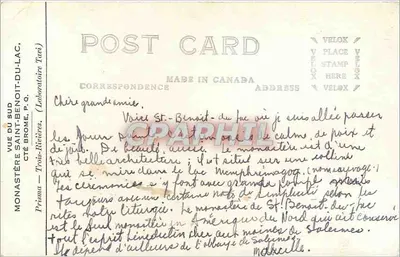 VUE DU SUD
MONASTÈRE SAINT-BENOIT-DU-LAC,
CTÉ BROME, P.Q.
Prisma — Trois-Rivières, (Laboratoire Tosi)
POST CARD
MADE IN CANADA
CORRESPONDENCE
ADDRESS
VELOX
PLACE
STAMP
HERE
VELOX
Chère grande amie.
Voici St.-Benoit-du-Lac où je suis allée passer
les jours saints calme, de paix et
de joie. De beauté aussi. Le monastère est d'une
très belle architecture; il est situé sur une colline
qui se mire dans le lac Memphrémagog (nom sauvage).
les cérémonies s'y font avec grande
toujours avec une certaine note de simplicité selon les
rites liturgie. Le monastère de St. Benoit-du-Lac
est le seul monastère en Amérique du Nord qui ait conservé
tout l'esprit bénédictin cher aux moines de Solesmes.
Il dépend d'ailleurs de l'abbaye de Solesmes.